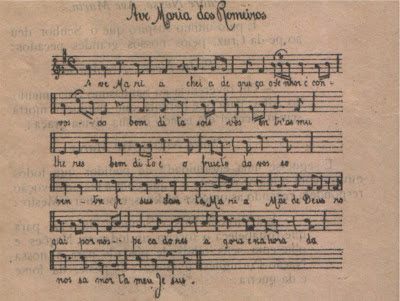 Ave Maria dos Romeiros
A ve Ma ri a chei a de gra ça o Se nhor é con-
vos - co bem di ta sois vós en tr'as mu
lhe res bem di to é o fructo do vos so
ven tre Je sus San ta Ma ri a Mãe de Deus ro
gai por nós - pe ca do res a gora e na hora da
nos sa mor ta meu Je sus.